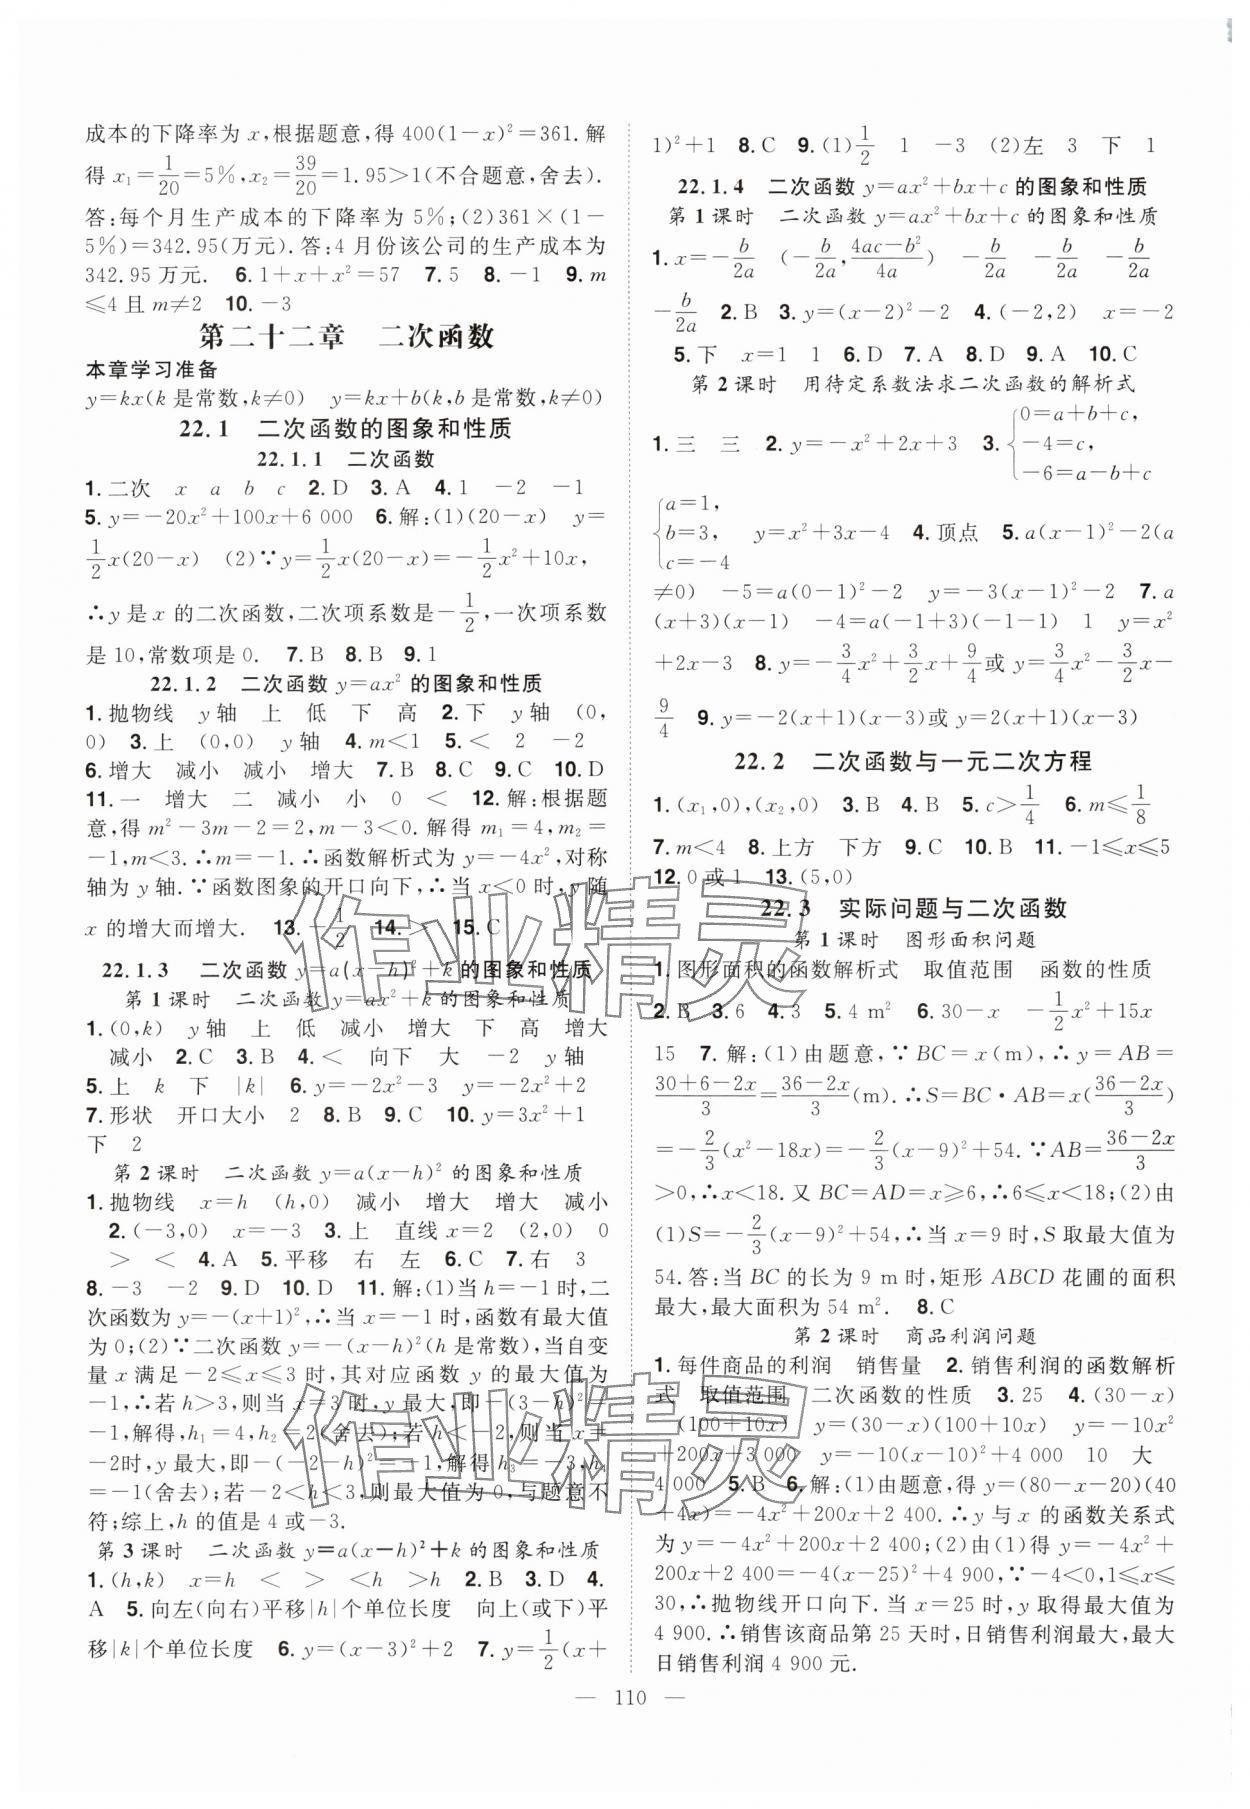 成本的下降率为 x,根据题意,得 400(1-x)²=361. 解
得 x₁=1/20=5%,x₂=39/20=1.95>1(不合题意,舍去).
答:每个月生产成本的下降率为 5%;(2)361×(1-
5%)=342.95(万元). 答:4 月份该公司的生产成本为
342.95 万元. 6. 1+x+x²=57 7. 5 8. -1 9. m
≤4 且 m≠2 10. -3
第二十二章 二次函数
本章学习准备
y=kx(k 是常数,k≠0) y=kx+b(k,b 是常数,k≠0)
22.1 二次函数的图象和性质
22.1.1 二次函数
1. 二次 x a b c 2. D 3. A 4. 1 -2 -1
5. y=-20x²+100x+6 000 6. 解:(1)(20-x) y=
1/2x(20-x) (2)∵y=1/2x(20-x)=-1/2x²+10x,
∴y 是 x 的二次函数,二次项系数是-1/2,一次项系数
是 10,常数项是 0. 7. B 8. B 9. 1
22.1.2 二次函数 y=ax² 的图象和性质
1. 抛物线 y 轴 上 低 下 高 2. 下 y 轴 (0,
0) 3. 上 (0,0) y 轴 4. m<1 5. < 2 -2
6. 增大 减小 减小 增大 7. B 8. C 9. C 10. D
11. 一 增大 二 减小 小 0 < 12. 解:根据题
意,得 m²-3m-2=2,m-3<0. 解得 m₁=4,m₂=
-1,m<3. ∴m=-1. ∴函数解析式为 y=-4x²,对称
轴为 y 轴. ∵函数图象的开口向下,∴当 x<0 时,y 随
x 的增大而增大. 13. -1/2 14. > 15. C
22.1.3 二次函数 y=a(x-h)²+k 的图象和性质
第 1 课时 二次函数 y=ax²+k 的图象和性质
1. (0,k) y 轴 上 低 减小 增大 下 高 增大
减小 2. C 3. B 4. < 向下 大 -2 y 轴
5. 上 k 下 |k| 6. y=-2x²-3 y=-2x²+2
7. 形状 开口大小 2 8. B 9. C 10. y=3x²+1
下 2
第 2 课时 二次函数 y=a(x-h)² 的图象和性质
1. 抛物线 x=h (h,0) 减小 增大 增大 减小
2. (-3,0) x=-3 3. 上 直线 x=2 (2,0) 0
> < 4. A 5. 平移 右 左 6. C 7. 右 3
8. -3 -2 9. D 10. D 11. 解:(1)当 h=-1 时,二
次函数为 y=-(x+1)²,∴当 x=-1 时,函数有最大值
为 0;(2)∵二次函数 y=-(x-h)²(h 是常数),当自变
量 x 满足-2≤x≤3 时,其对应函数 y 的最大值为
-1,∴若 h>3,则当 x=3 时,y 最大,即-(3-h)²=
-1,解得,h₁=4,h₂=2(舍去);若 h<-2,则当 x=
-2时,y 最大,即-(-2-h)²=-1,解得 h₃=-3,h₄
=-1(舍去);若-2<h<3,则最大值为 0,与题意不
符;综上,h 的值是 4 或-3.
第 3 课时 二次函数 y=a(x-h)²+k 的图象和性质
1. (h,k) x=h < > <h >h 2. B 3. D 4.
A 5. 向左(向右)平移|h|个单位长度 向上(或下)平
移|k|个单位长度 6. y=(x-3)²+2 7. y=1/2(x+
1)²+1 8. C 9. (1)1/2 1 -3 (2)左 3 下 1
22.1.4 二次函数 y=ax²+bx+c 的图象和性质
第 1 课时 二次函数 y=ax²+bx+c 的图象和性质
1. x=-b/2a (-b/2a,(4ac-b²)/4a) -b/2a -b/2a -b/2a
-b/2a 2. B 3. y=(x-2)²-2 4. (-2,2) x=-2
5. 下 x=1 1 6. D 7. A 8. D 9. A 10. C
第 2 课时 用待定系数法求二次函数的解析式
1. 三 三 2. y=-x²+2x+3 3. {0=a+b+c, -4=c, -6=a-b+c
{a=1, b=3, c=-4 y=x²+3x-4 4. 顶点 5. a(x-1)²-2(a
≠0) -5=a(0-1)²-2 y=-3(x-1)²-2 7. a
(x+3)(x-1) -4=a(-1+3)(-1-1) 1 y=x²
+2x-3 8. y=-3/4x²+3/2x+9/4或 y=3/4x²-3/2x-
9/4 9. y=-2(x+1)(x-3)或 y=2(x+1)(x-3)
22.2 二次函数与一元二次方程
1. (x₁,0),(x₂,0) 3. B 4. B 5. c>1/4 6. m≤1/8
7. m<4 8. 上方 下方 9. C 10. B 11. -1≤x≤5
12. 0 或 1 13. (5,0)
22.3 实际问题与二次函数
第 1 课时 图形面积问题
1. 图形面积的函数解析式 取值范围 函数的性质
2. B 3. 6 4. 3 5. 4 m² 6. 30-x -1/2x²+15x
15 7. 解:(1)由题意,∵BC=x(m),∴y=AB=
(30+6-2x)/3=(36-2x)/3(m). ∴S=BC·AB=x((36-2x)/3)
=-2/3(x²-18x)=-2/3(x-9)²+54. ∵AB=(36-2x)/3
>0,∴x<18. 又 BC=AD=x≥6,∴6≤x<18;(2)由
(1)S=-2/3(x-9)²+54,∴当 x=9 时,S 取最大值为
54. 答:当 BC 的长为 9 m 时,矩形 ABCD 花圃的面积
最大,最大面积为 54 m². 8. C
第 2 课时 商品利润问题
1. 每件商品的利润 销售量 2. 销售利润的函数解析
式 取值范围 二次函数的性质 3. 25 4. (30-x)
(100+10x) y=(30-x)(100+10x) y=-10x²
+200x+3 000 y=-10(x-10)²+4 000 10 大
4 000 5. B 6. 解:(1)由题意,得 y=(80-x-20)(40
+4x)=-4x²+200x+2 400. ∴y 与 x 的函数关系式
为 y=-4x²+200x+2 400;(2)由(1)得 y=-4x²+
200x+2 400=-4(x-25)²+4 900,∵-4<0,1≤x≤
30,∴抛物线开口向下. ∴当 x=25 时,y 取得最大值为
4 900. ∴销售该商品第 25 天时,日销售利润最大,最大
日销售利润 4 900 元.
— 110 —
作业精灵
作业精灵